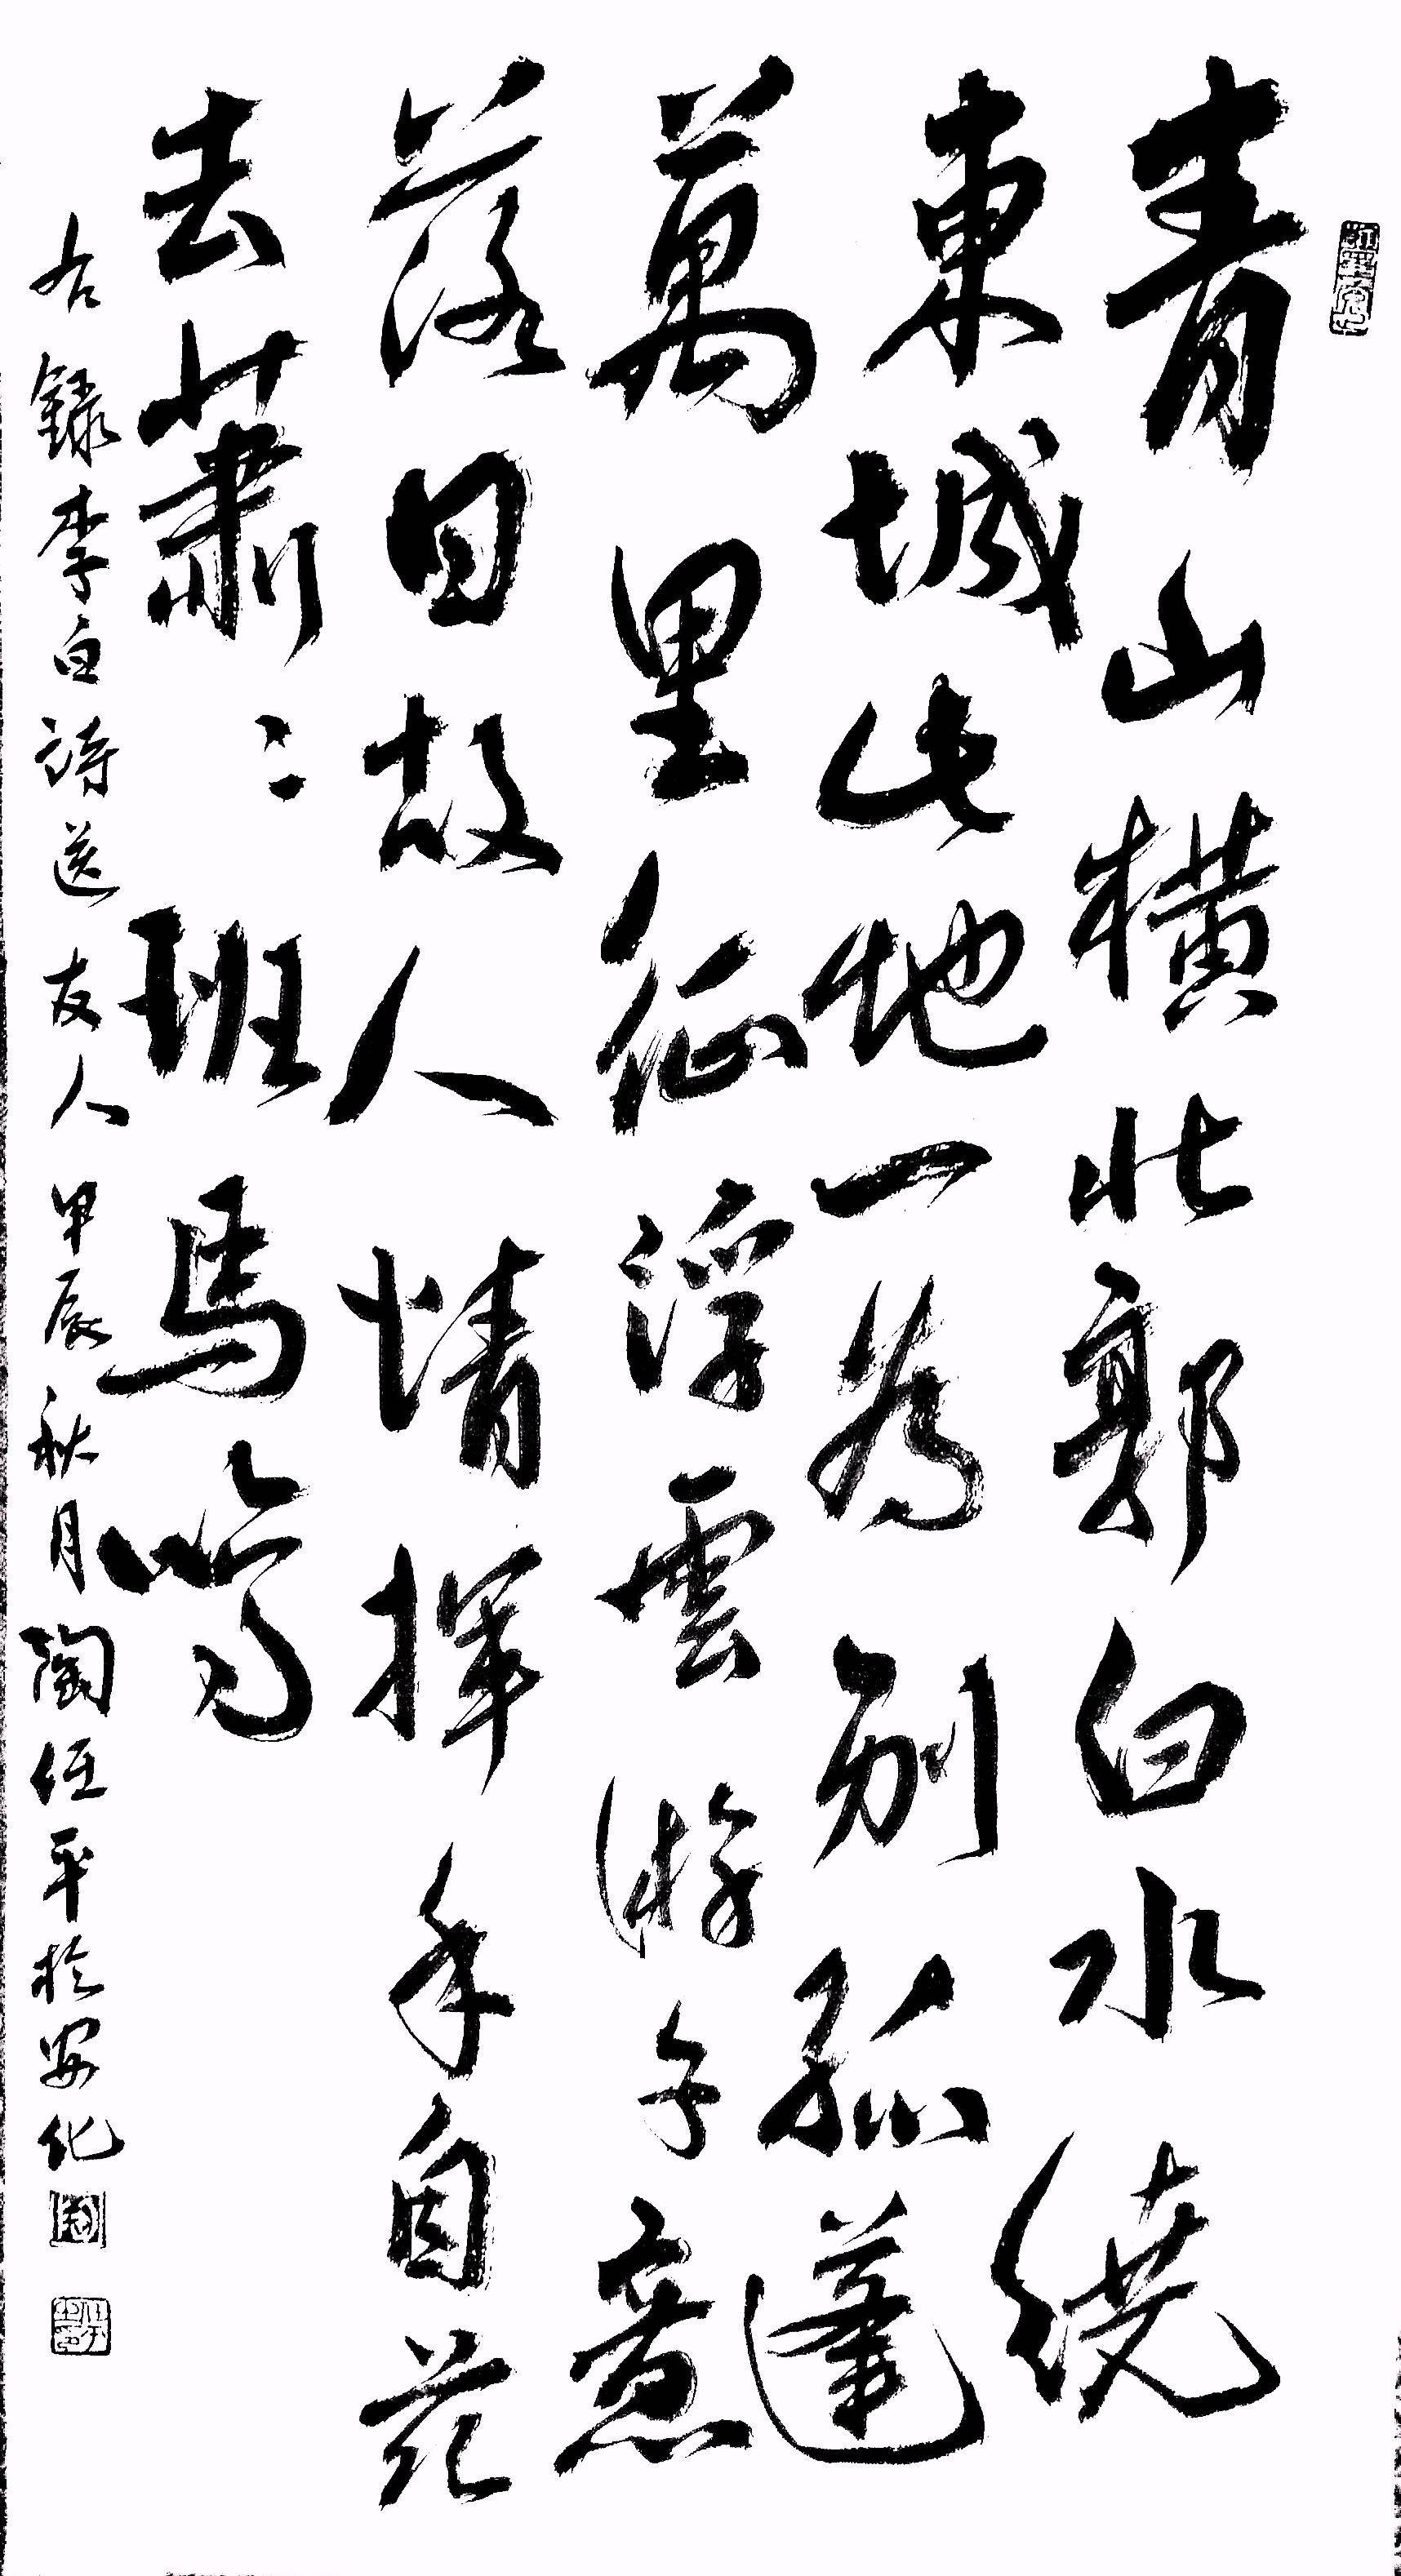 青山橫北郭白水繞
東城此地一為別孤蓬
萬里征浮雲游子意
落日故人情揮手自茲
去蕭〻班馬鳴
右錄李白詩送友人甲辰秋月陶任平於安化